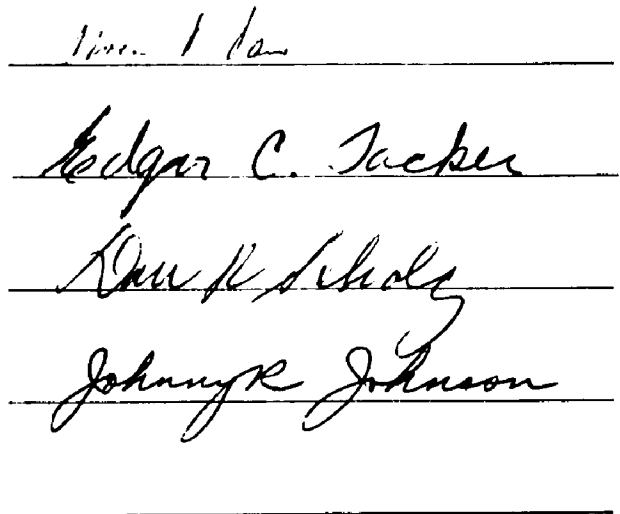 Edgar C. Tacker
Dan R Scholz
Johnny R Johnson